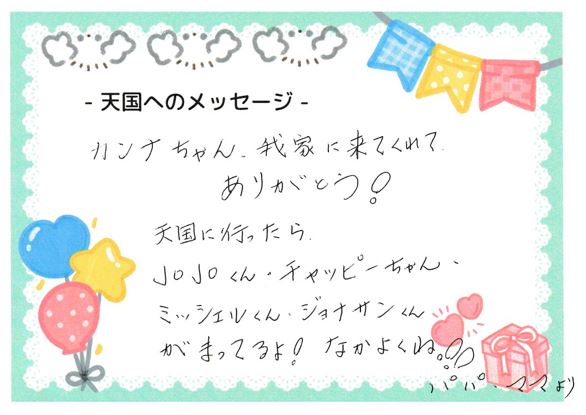 - 天国へのメッセージ -
カンナちゃん、我家に来てくれて、
ありがとう!
天国に行ったら、
JOJOくん・チャッピーちゃん・
ミッシェルくん・ジョナサンくん
がまってるよ! なかよくね!!
パパ・ママより